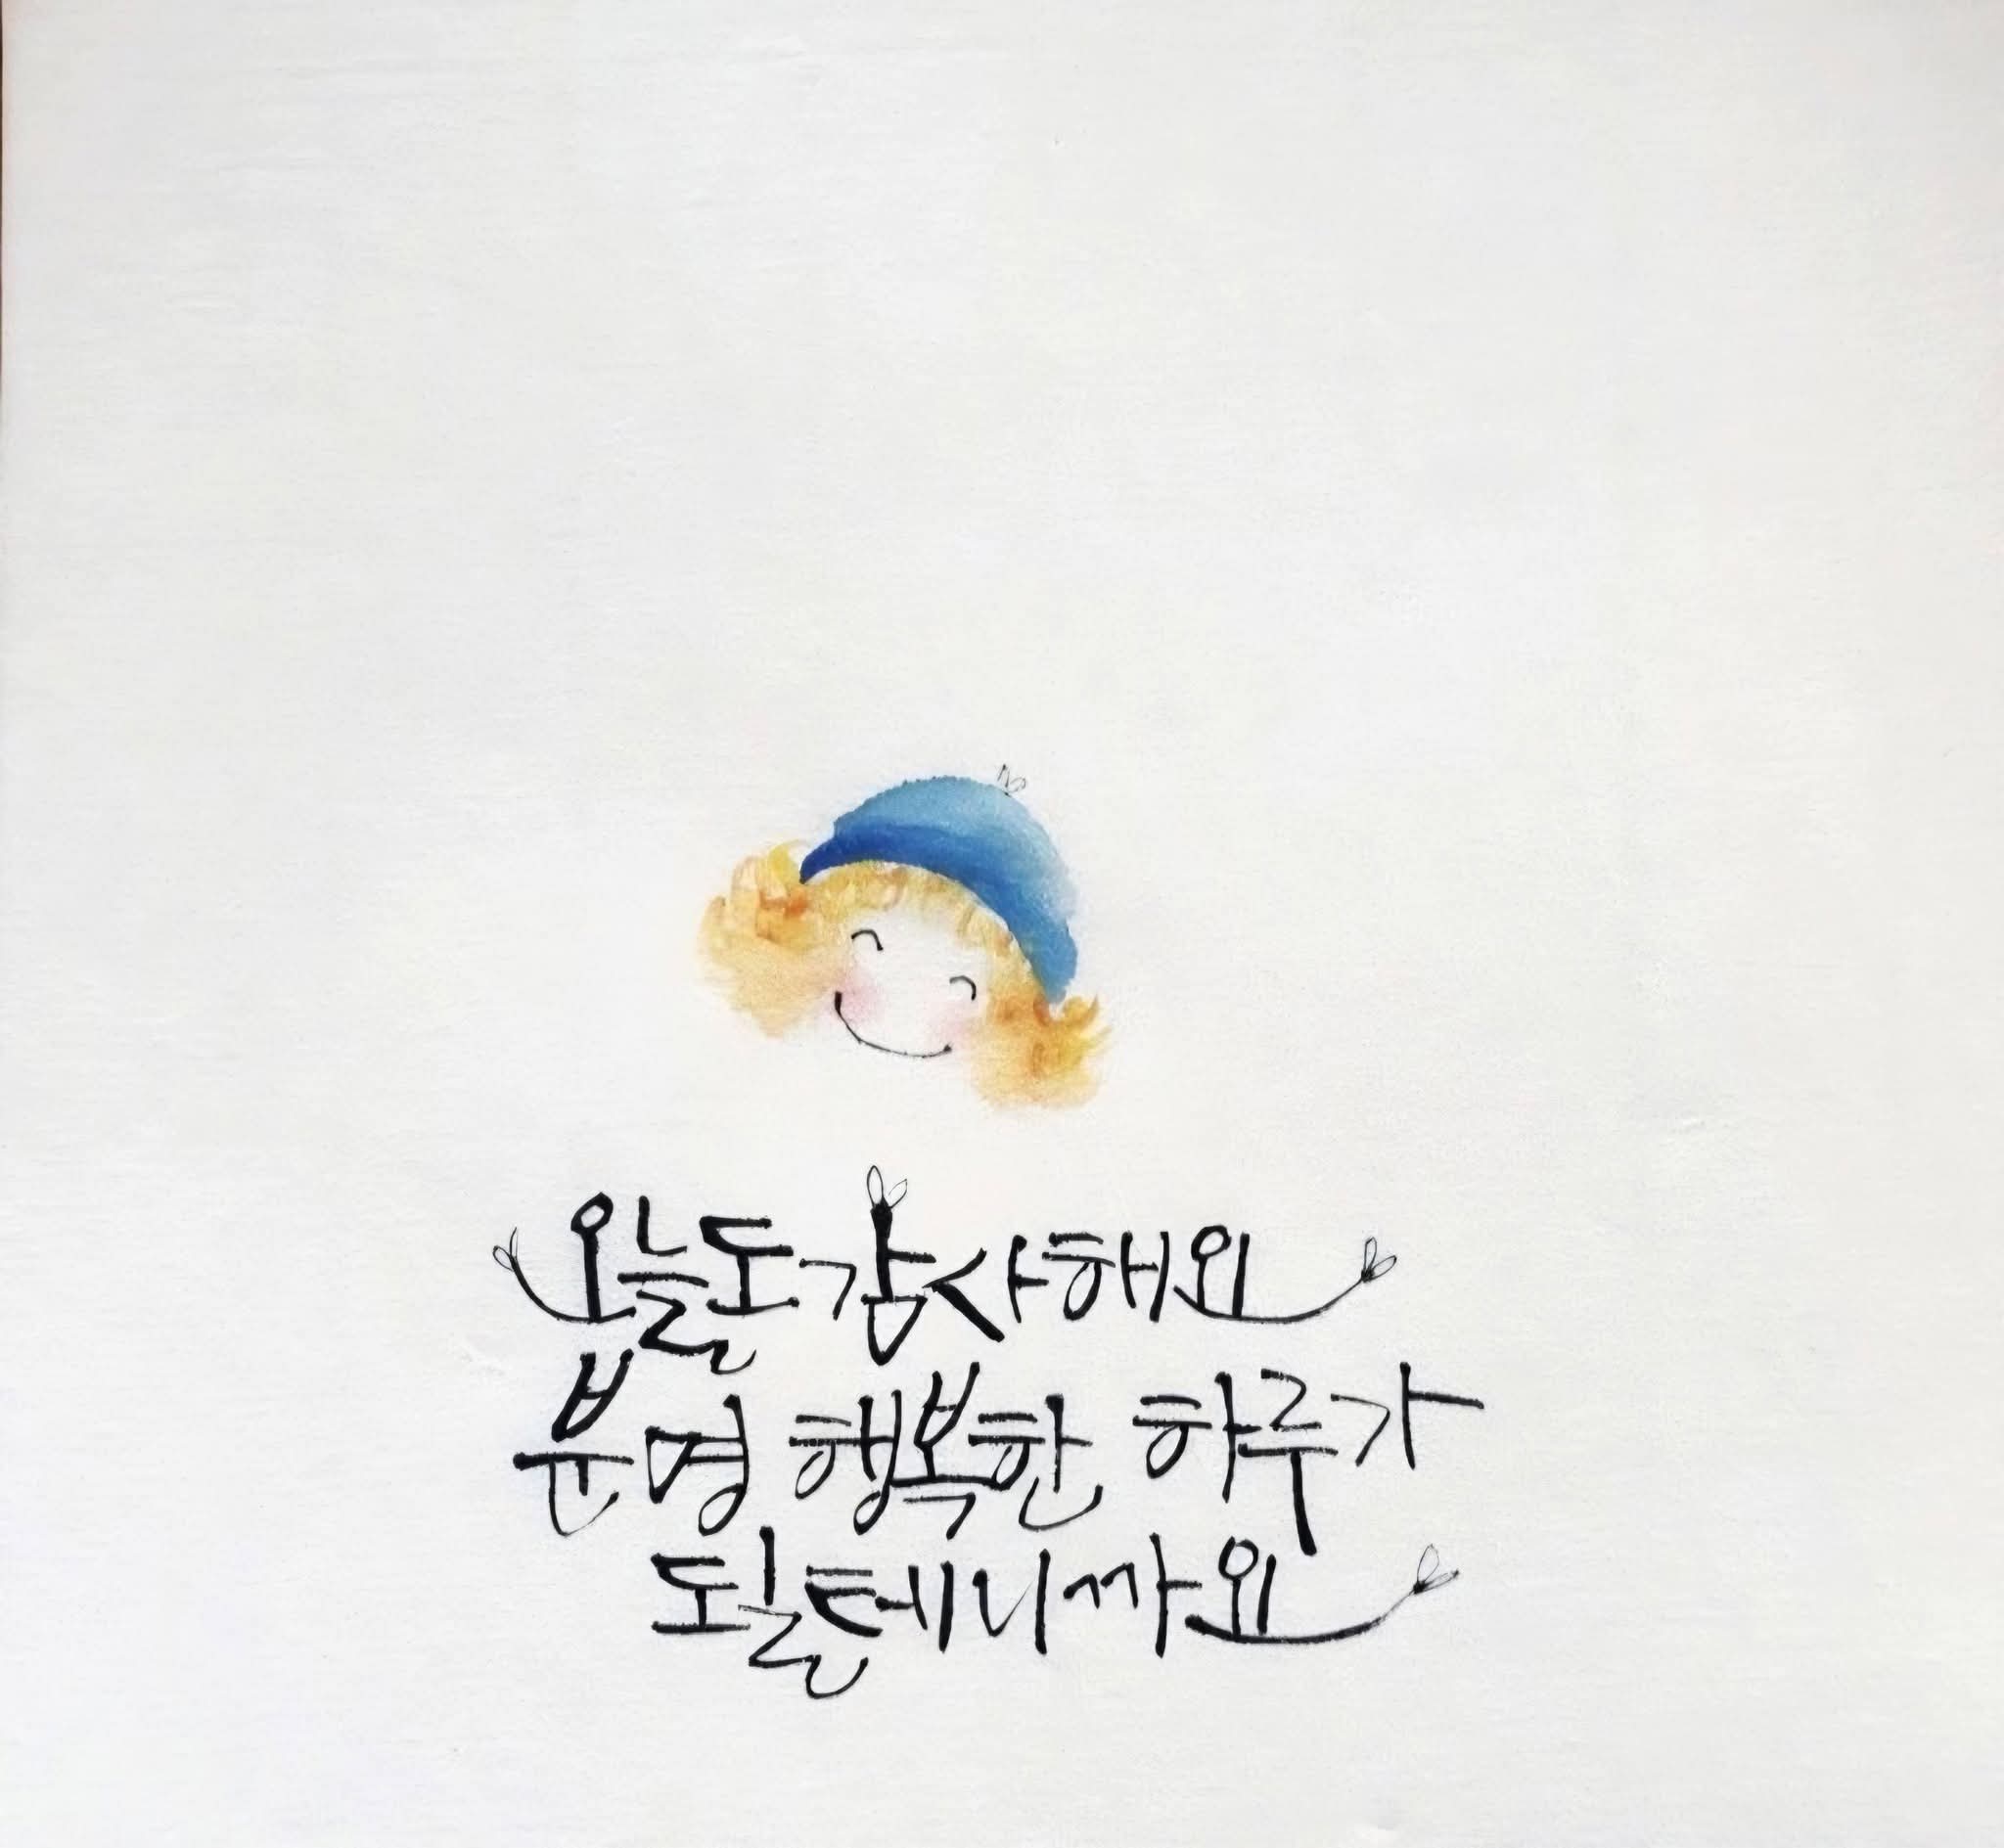 오늘도 감사해요
분명 행복한 하루가
될테니까요